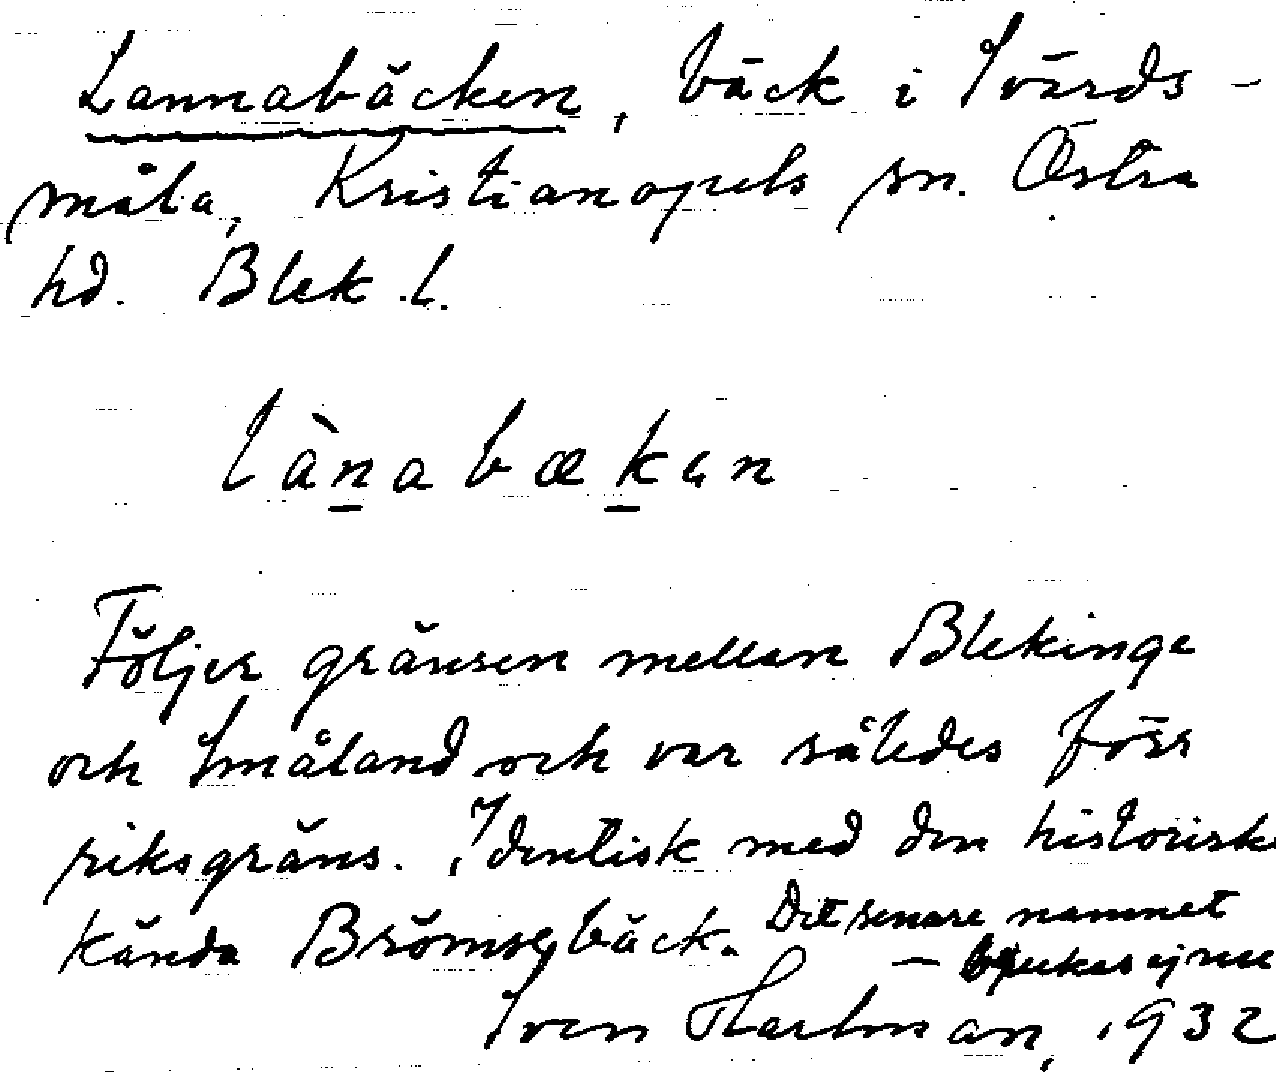 Lannabäcken, bäck i Svärds-
måla, Kristianopels sn. Östra
hd. Blek. l.
lànabækɘn
Följer gränsen mellan Blekinge
och Småland och var således förr
riksgräns. Identisk med den historiskt
kända Brömsebäck. Det senare namnet
– brukas ej nu
Sven Hartman, 1932